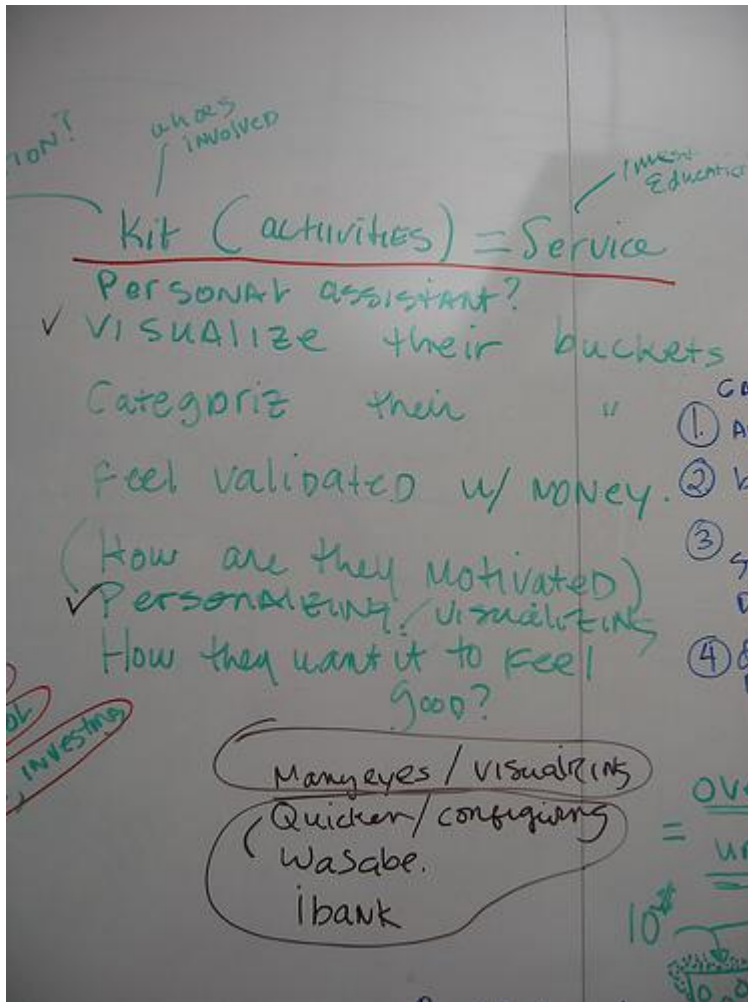 TION?
whoes
involved
Invest
Education
Kit (activities) = Service
Personal assistant?
✓ Visualize their buckets
Categoriz their "
Feel validated w/ money.
(How are they motivated)
✓ Personalizing/visualizing
How they want it to feel
good?
investing
Manyeyes / visualizing
Quicken/configuring
Wasabe.
ibank
①
②
③
④
=
10$